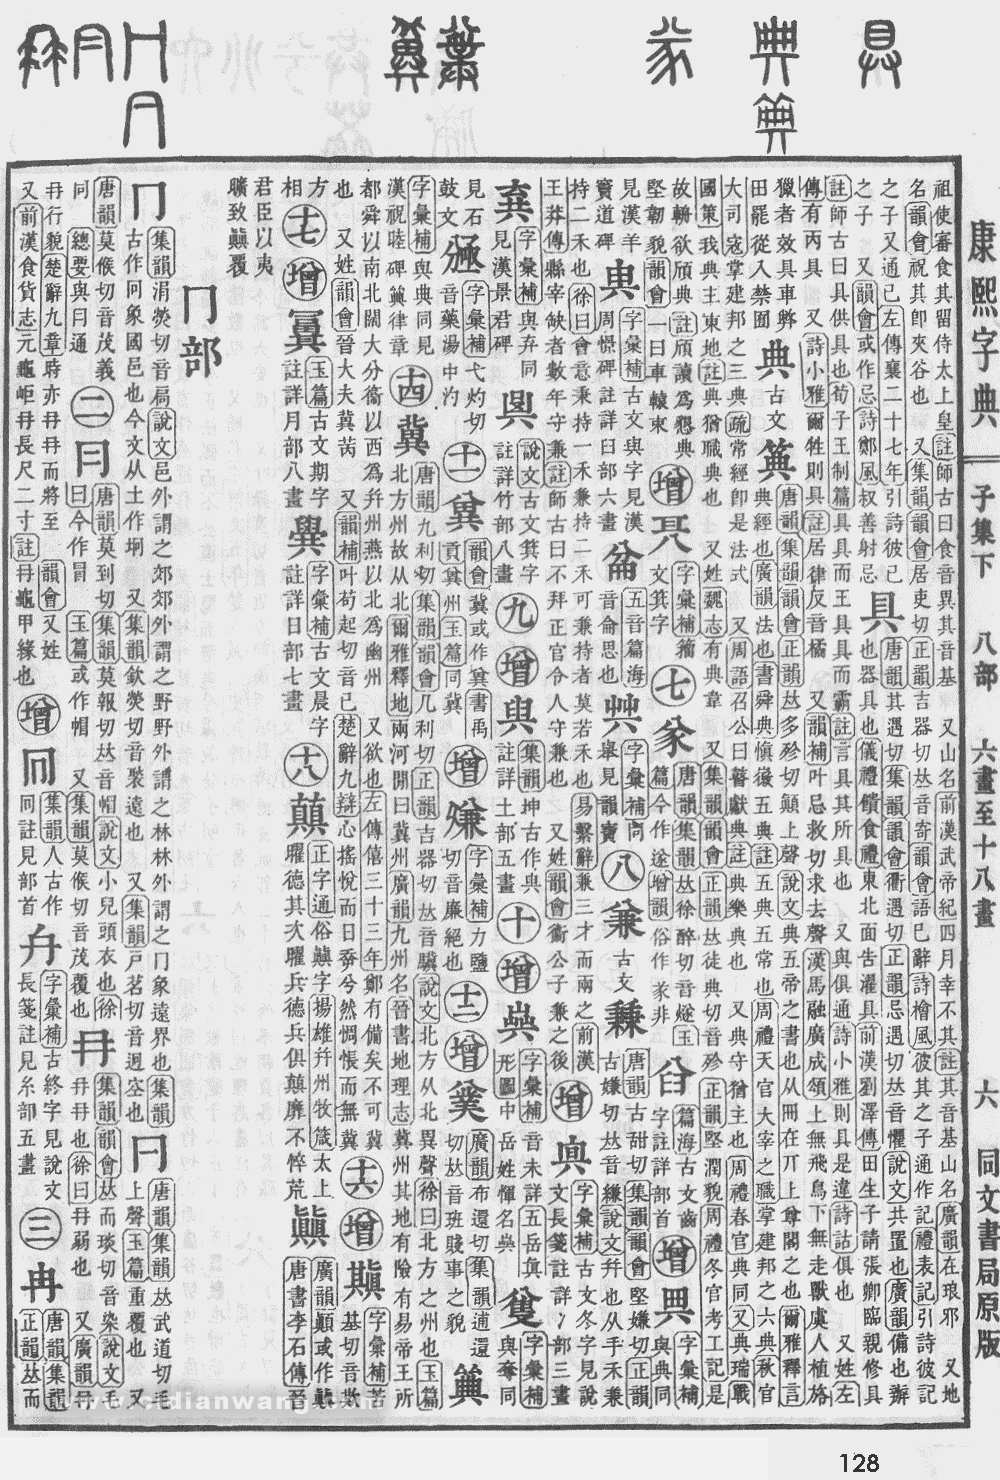 康熙字典 子集下 八部 六畫至十八畫 六 同文書局原版
祖使審食其留侍太上皇註師古曰食音異其音基 又山名前漢武帝紀四月幸不其註其音基山名廣韻在琅邪 又地
名韻會祝其卽夾谷也 又集韻韻會居吏切正韻吉器切𠀤音寄韻會語已辭詩檜風彼其之子通作記禮表記引詩彼記
之子又通己左傳襄二十七年引詩彼己
之子 又韻會或作忌詩鄭風叔善射忌
具
唐韻其遇切集韻韻會衢遇切正韻忌遇切𠀤音懼說文共置也廣韻備也辦
也器具也儀禮饋食禮東北面告濯具前漢劉澤傳田生子請張卿臨親修具
註師古曰具供具也荀子王制篇具具而王具具而霸註言具其所具也 又與俱通詩小雅則具是違詩詁俱也 又姓左
傳有丙具 又詩小雅爾牲則具註居律反音橘 又韻補叶忌救切求去聲漢馬融廣成頌上無飛鳥下無走獸虞人植旍
獵者效具車弊
田罷從入禁囿
典 古文
唐韻集韻韻會正韻𠀤多殄切顚上聲說文典五帝之書也从冊在丌上尊閣之也爾雅釋言
典經也廣韻法也書舜典愼徽五典註五典五常也周禮天官大宰之職掌建邦之六典秋官
大司寇掌建邦之三典疏常經卽是法式 又周語召公曰瞽獻典註典樂典也 又典守猶主也周禮春官典同 又典瑞戰
國策我典主東地註典猶職典也 又姓魏志有典韋 又集韻韻會正韻𠀤徒典切音殄正韻堅潤貌周禮冬官考工記是
故輈欲頎典註頎讀爲懇典
堅韌貌韻會一曰車轅束
增 字彙補籀文箕字
七 㒸 唐韻集韻𠀤徐醉切音燧玉篇今作遂增韻俗作㒸非
篇海古文齒字註詳部首
增 字彙補與興同
見漢羊竇道碑
字彙補古文與字見漢周憬碑註詳臼部六畫
五音篇海音侖思也
字彙補同舉見韻寶
八 兼 古文
唐韻古甜切集韻韻會堅嫌切正韻
古嫌切𠀤音縑說文幷也从手禾兼
持二禾也徐曰會意秉持一禾兼持二禾可兼持者莫若禾也易繫辭兼三才而兩之前漢
王莽傳縣宰缺者數年守兼註師古曰不拜正官令人守兼也 又姓韻會衞公子兼之後
增 字彙補古文冬字見說文長箋註詳冫部三畫
字彙補與弃同見漢景君碑
說文古文箕字註詳竹部八畫
九 增 與 集韻坤古作與註詳土部五畫
十 增 字彙補音未詳五岳眞形圖中岳姓惲名
字彙補與奪同
見石鼓文
字彙補弋灼切音藥湯中灼
十一 韻會冀或作兾書禹貢兾州玉篇同冀
增 字彙補力鹽切音廉絕也
十二 增 廣韻布還切集韻逋還切𠀤音班賤事之貌
字彙補與典同見漢祝睦碑
十四 冀 唐韻九利切集韻韻會几利切正韻吉器切𠀤音驥說文北方从北異聲徐曰北方之州也玉篇
北方州故从北爾雅釋地兩河閒曰冀州廣韻九州名晉書地理志冀州其地有險有易帝王所
都舜以南北闊大分衞以西爲幷州燕以北爲幽州 又欲也左傳僖三十三年鄭有備矣不可冀
也 又姓韻會晉大夫冀芮 又韻補叶茍起切音己楚辭九辯心搖悅而日幸兮然惆悵而無冀
十六 增 字彙補苦基切音欺方相
十七 增 玉篇古文期字註詳月部八畫
字彙補古文晨字註詳日部七畫
十八 顚 正字通俗顚字揚雄幷州牧箴太上曜德其次曜兵德兵俱顚靡不悴荒
廣韻顚或作
唐書李石傳晉
君臣以夷曠致覆
冂部
冂 集韻涓熒切音扃說文邑外謂之郊郊外謂之野野外謂之林林外謂之冂象遠界也集韻
古作冋象國邑也今文从土作坰 又集韻欽熒切音褧遠也 又集韻戶茗切音迥空也
唐韻集韻𠀤武道切毛上聲玉篇重覆也 又
唐韻莫候切音茂義同 總要與冃通
二 冃 唐韻莫到切集韻莫報切𠀤音帽說文小兒頭衣也徐曰今作冒 玉篇或作帽 又集韻莫候切音茂覆也
冄 集韻韻會𠀤而琰切音染說文毛冄冄也徐曰冄弱也 又廣韻冄
冄行貌楚辭九章時亦冄冄而將至 韻會又姓
又前漢食貨志元龜岠冄長尺二寸註冄龜甲緣也
增 集韻人古作 同註見部首
字彙補古終字見說文長箋註見糸部五畫
三 冉 唐韻集韻正韻𠀤而
www.cidianwang.com
128